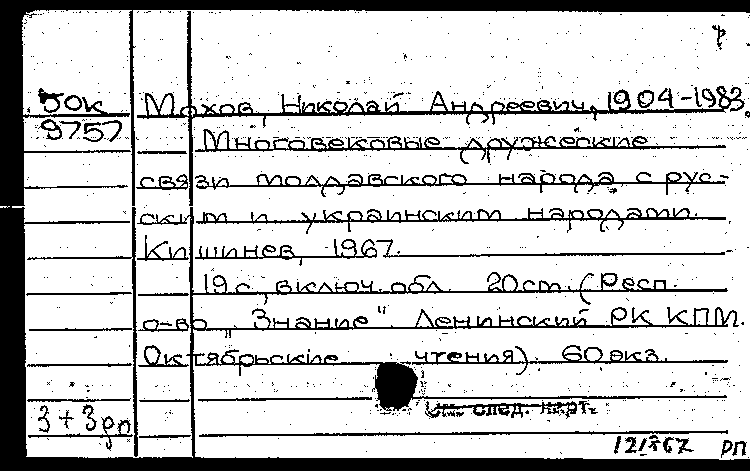 р
БОК
9757
Мохов, Николай Андреевич, 1904-1983.
Многовековые дружеские
связи молдавского народа с рус-
ским и украинским народами.
Кишинев, 1967.
19 с., включ. обл. 20 cm. (Респ.
о-во „Знание". Ленинский РК КПМ.
Октябрьские чтения). 60 экз.
См. след. карт.
3 + 3рп
РП